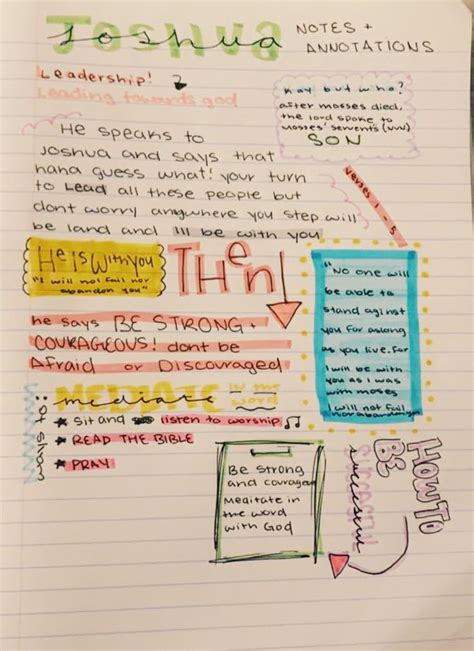 Joshua
NOTES +
ANNOTATIONS
Leadership!
Leading towards god
Kay but who?
after mosses died,
the lord spoke to
mosses' servents (nun)
SON
verses 1 - 5
He speaks to
Joshua and says that
haha guess what! your turn
to Lead all these people but
dont worry anywhere you step will
be land and Ill be with you
He is with you
"I will not fail nor
abandon you"
THen
"No one will
be able to
stand against
you for aslong
as you live. For
I will be with
you as I was
with moses
I will not fail
nor abandon you
he says BE STRONG +
COURAGEOUS! dont be
Afraid or Discouraged
MEDIATE in the
mediate word
ways to:
★ sit and listen to worship ♫
★ READ THE BIBLE
★ PRAY
Be strong
and courageous
Meditate in
the word
with God
HOW TO
BE
SUCCESSFUL
successful